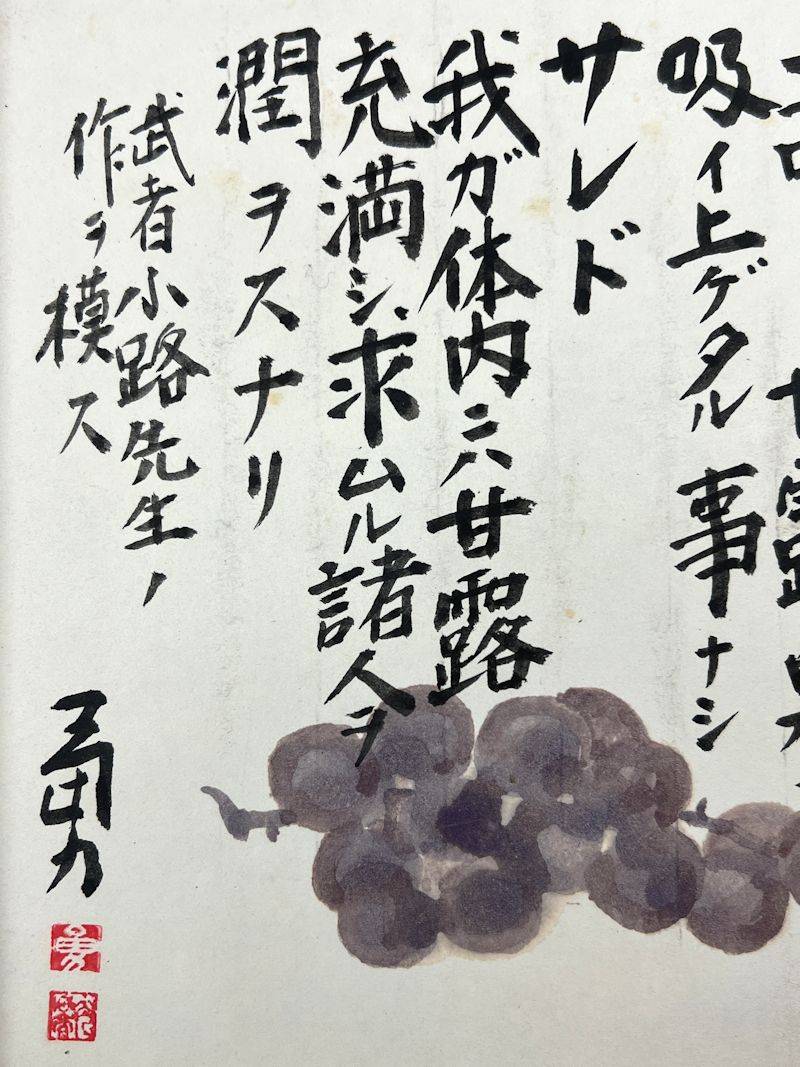 吸イ上ゲタル事ナシ
サレド
我ガ体内ニハ甘露
充満シ、求ムル諸人ヲ
潤ヲスナリ
武者小路先生ノ
作ヲ模ス
勇